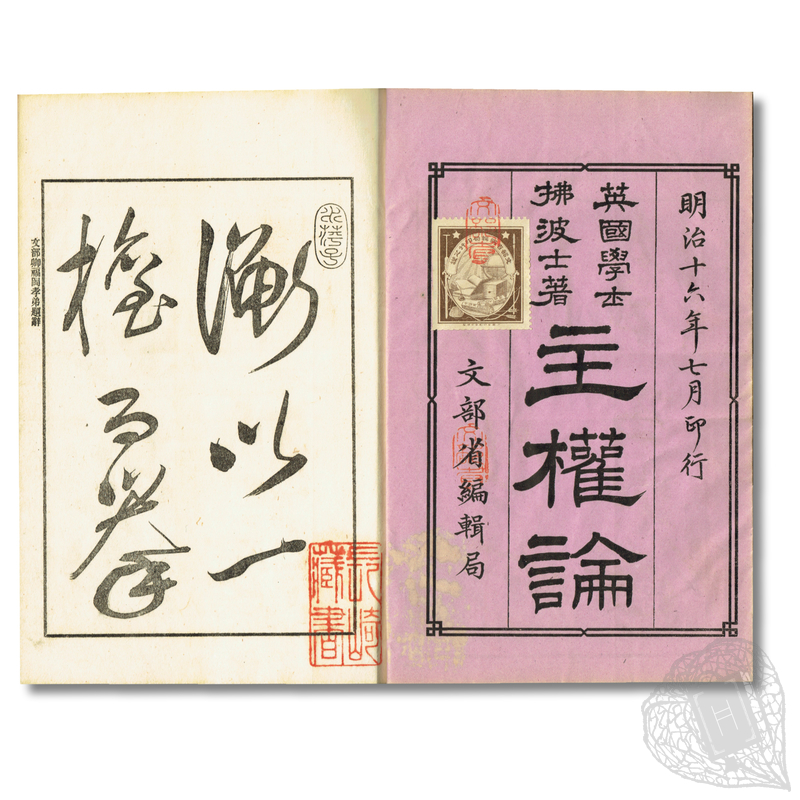 明治十六年七月印行
英國學士
拂波士著
主權論
文部省編輯局
以一
文部卿福岡孝弟題辭
長崎
藏書
H